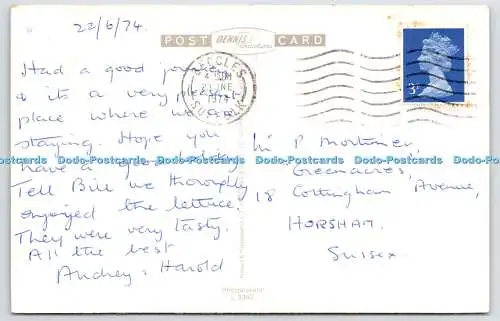 22/6/74.
POST DENNIS Productions CARD
BECCLES
1974
SUFFOLK
3P
Had a good journey
& its a very pleasant
place where we are
staying. Hope you
have a good holiday
Tell Bill we thoroughly
enjoyed the lettuce.
They were very tasty.
All the best
Audrey & Harold
P Mortimer,
Greenacres,
18 Cottingham Avenue,
HORSHAM.
SUSSEX.
Dodo-Postcards Dodo-Postcards Dodo-Postcards Dodo-Postcards Dodo-Postcards Dodo-Postcards